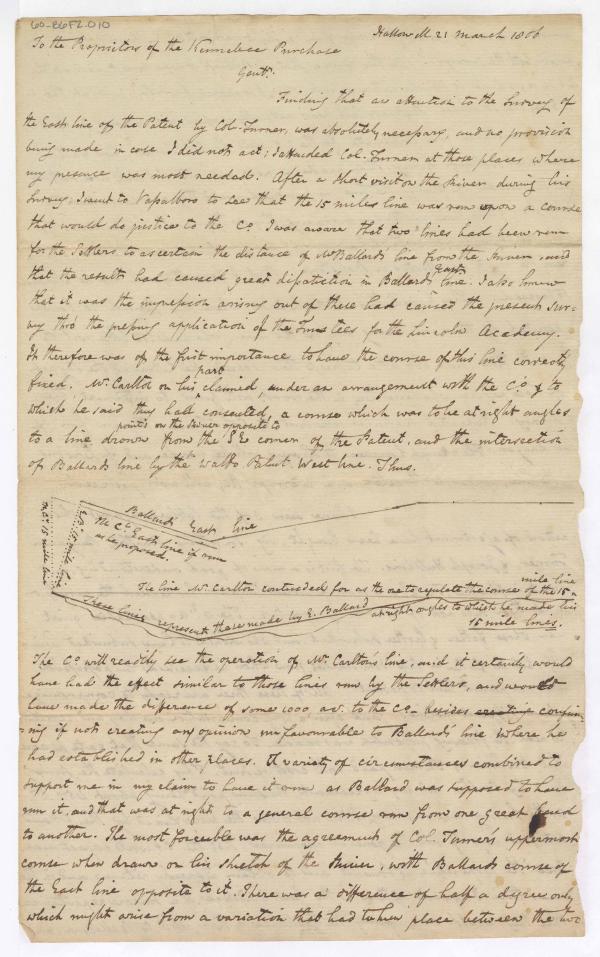 60-86F2.010
Hallowell 21 March 1806
To the Proprietors of the Kennebec Purchase
Gentn.
Finding that an attention to the Survey of
the East line of the Patent by Col. Turner, was absolutely necessary, and no provision
being made in case I did not act; I attended Col. Turner at those places where
my presence was most needed. After a short visit on the River during his
Survey; I went to Vassalboro to see that the 15 miles line was run upon a course
that would do justice to the Co. I was aware that two lines had been run
for the Settlers to ascertain the distance of Mr Ballard's line from the River, and
that the results had caused great disatiction in Ballard's East line. I also knew
that it was the impression arising out of these had caused the present Sur-
vey thro' the pressing application of the Trustees for the Lincoln Academy.
It therefore was of the first importance to have the course of this line correctly
fixed. Mr. Carlton on his part claimed, under an arrangement with the Co. & to
which he said they had consented, a course which was to be at right angles
to a line drawn from points on the River opposite to the S E corner of the Patent, and the intersection
of Ballards line by the Waldo Patent West line. Thus.
Ballard's East line
The Co. East line if run
as he proposed.
15 mile line
The line Mr. Carlton contended for as the one to regulate the course of the 15 mile line
These lines represent those made by E. Ballard
at right angles to which he made his
15 mile lines.
The Co. will readily see the operation of Mr. Carlton's line, and it certainly would
have had the effect similar to those lines run by the Settlers, and would
have made the difference of some 1000 as. to the Co. besides creating confirm-
ing if not creating any opinion unfavourable to Ballard's line where he
had established in other places. A variety of circumstances combined to
support me in my claim to have it run as Ballard was supposed to have
run it, and that was at right to a general course run from one great bend
to another. The most forceible was the agreement of Col. Turner's uppermost
course when drawn on his sketch of the River, with Ballards course of
the East line opposite to it. There was a difference of half a degree only
which might arise from a variation that had taken place between the two